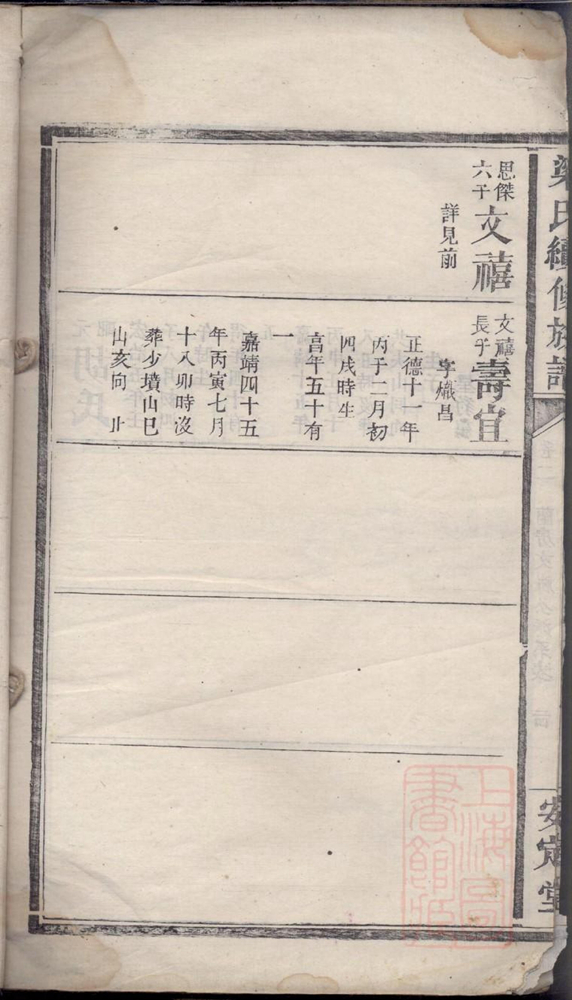 梁氏續修族譜
安定堂
思傑六子文禧
詳見前
文禧長子壽宜
字熾昌
正德十一年
丙子二月初
四戌時生
高年五十有
一
嘉靖四十五
年丙寅七月
十八卯時沒
葬少墳山巳
山亥向止
上海圖書館藏